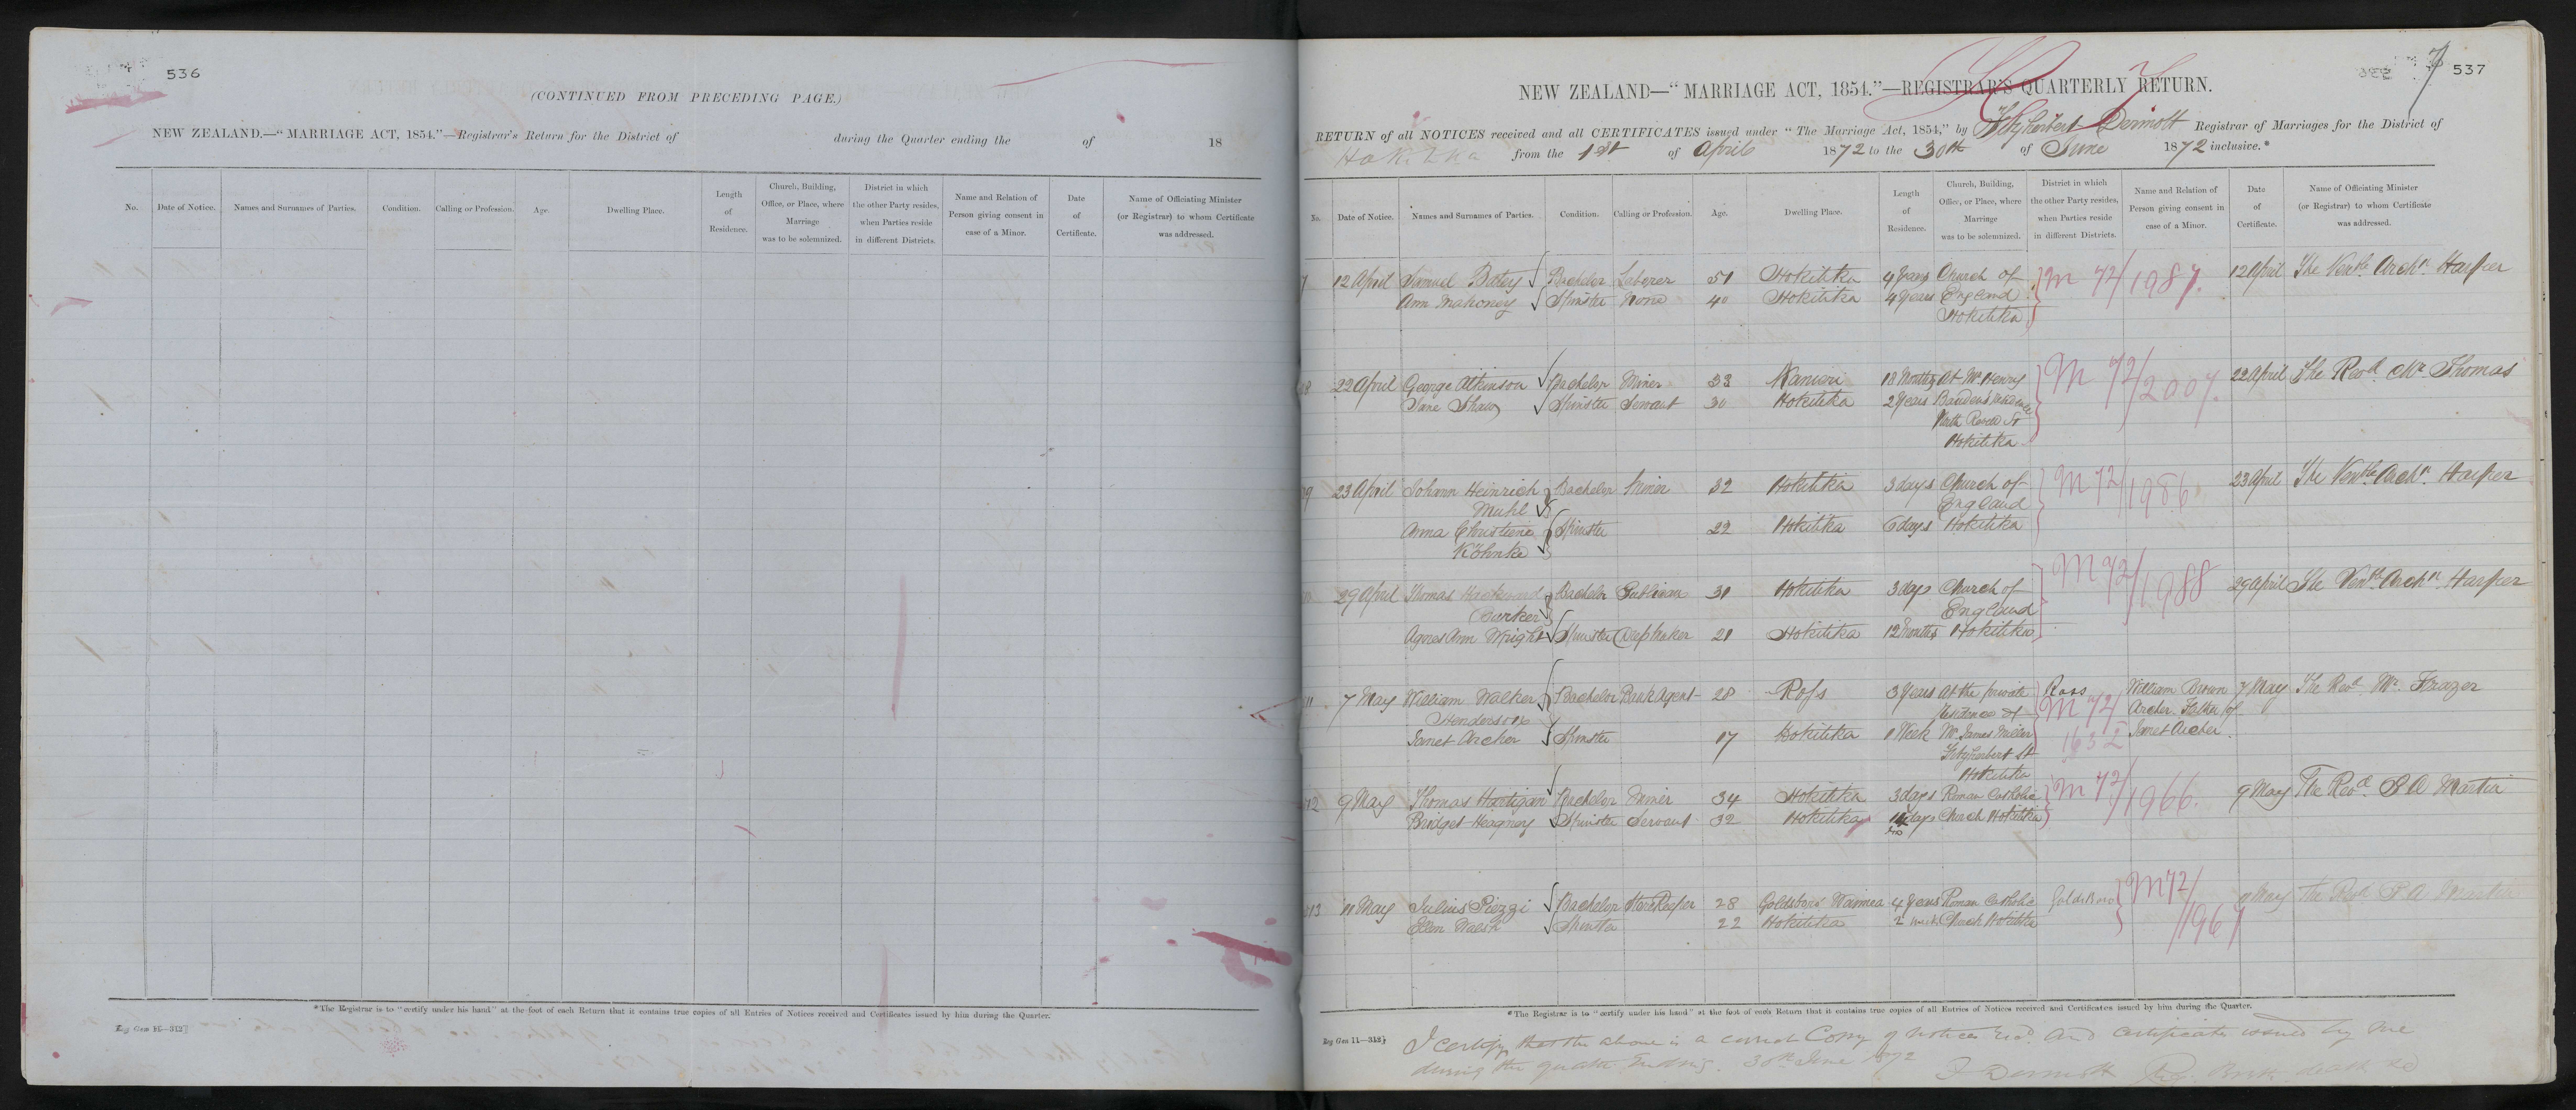 536
(CONTINUED FROM PRECEDING PAGE.)
NEW ZEALAND.—"MARRIAGE ACT, 1854."—Registrar's Return for the District of during the Quarter ending the of 18
No. Date of Notice. Names and Surnames of Parties. Condition. Calling or Profession. Age. Dwelling Place. Length of Residence. Church, Building, Office, or Place, where Marriage was to be solemnized. District in which the other Party resides, when Parties reside in different Districts. Name and Relation of Person giving consent in case of a Minor. Date of Certificate. Name of Officiating Minister (or Registrar) to whom Certificate was addressed.
*The Registrar is to "certify under his hand" at the foot of each Return that it contains true copies of all Entries of Notices received and Certificates issued by him during the Quarter.
Reg Gen 11—312]
7 537
NEW ZEALAND—"MARRIAGE ACT, 1854."—REGISTRAR'S QUARTERLY RETURN.
RETURN of all NOTICES received and all CERTIFICATES issued under "The Marriage Act, 1854," by Fitzherbert Dermott Registrar of Marriages for the District of
Hokitika from the 1st of April 1872 to the 30th of June 1872 inclusive.*
No. Date of Notice. Names and Surnames of Parties. Condition. Calling or Profession. Age. Dwelling Place. Length of Residence. Church, Building, Office, or Place, where Marriage was to be solemnized. District in which the other Party resides, when Parties reside in different Districts. Name and Relation of Person giving consent in case of a Minor. Date of Certificate. Name of Officiating Minister (or Registrar) to whom Certificate was addressed.
7 12 April Samuel Batey Bachelor Laborer 51 Hokitika 4 Years Church of M 72/1987. 12 April The Venble Archn. Harper
Ann Mahoney Spinster None 40 Hokitika 4 Years England
Hokitika
8 22 April George Atkinson Bachelor Miner 33 Kanieri 18 Months At Mr Henry M 72/2007. 22 April The Revd. Mr Thomas
Jane Shaw Spinster Servant 30 Hokitika 2 Years
Revell St
Hokitika
9 23 April Johann Heinrich Bachelor Miner 32 Hokitika 3 days Church of M 72/1986 23 April The Venble Archn. Harper
Muhl England
Anna Christine Spinster 22 Hokitika 6 days Hokitika
Köhnke
29 April Thomas Bachelor Publican 31 Hokitika 3 days Church of M 72/1988 29 April The Venble Archn Harper
Barker England
Agnes Ann Wright Spinster 21 Hokitika 12 Months Hokitika
11 7 May William Walker Bachelor Bank Agent 28 Ross 3 Years At the private Ross William Brown 7 May The Revd. Mr. Frazer
Henderson Residence of M 72/1632 Archer Father of
Janet Archer Spinster 17 Hokitika 1 Week Mr James Miller Janet Archer
Fitzherbert St
Hokitika
12 9 May Thomas Hartigan Bachelor Miner 34 Hokitika 3 days Roman Catholic M 72/1966. 9 May The Revd. P A Martin
Bridget Heagney Spinster Servant 32 Hokitika days Church Hokitika
13 11 May Julius Piezzi Bachelor Storekeeper 28 Goldsboro' Waimea 4 Years Roman Catholic Goldsboro M 72/1967 11 May The Revd. P A Martin
Ellen Walsh Spinster 22 Hokitika 2 weeks Church Hokitika
*The Registrar is to "certify under his hand" at the foot of each Return that it contains true copies of all Entries of Notices received and Certificates issued by him during the Quarter.
Reg Gen 11—312]
I certify that the above is a correct Copy of Notices Recd. and certificates issued by me
during the quarter Ending. 30th June 1872
F Dermott Reg. Births deaths &c